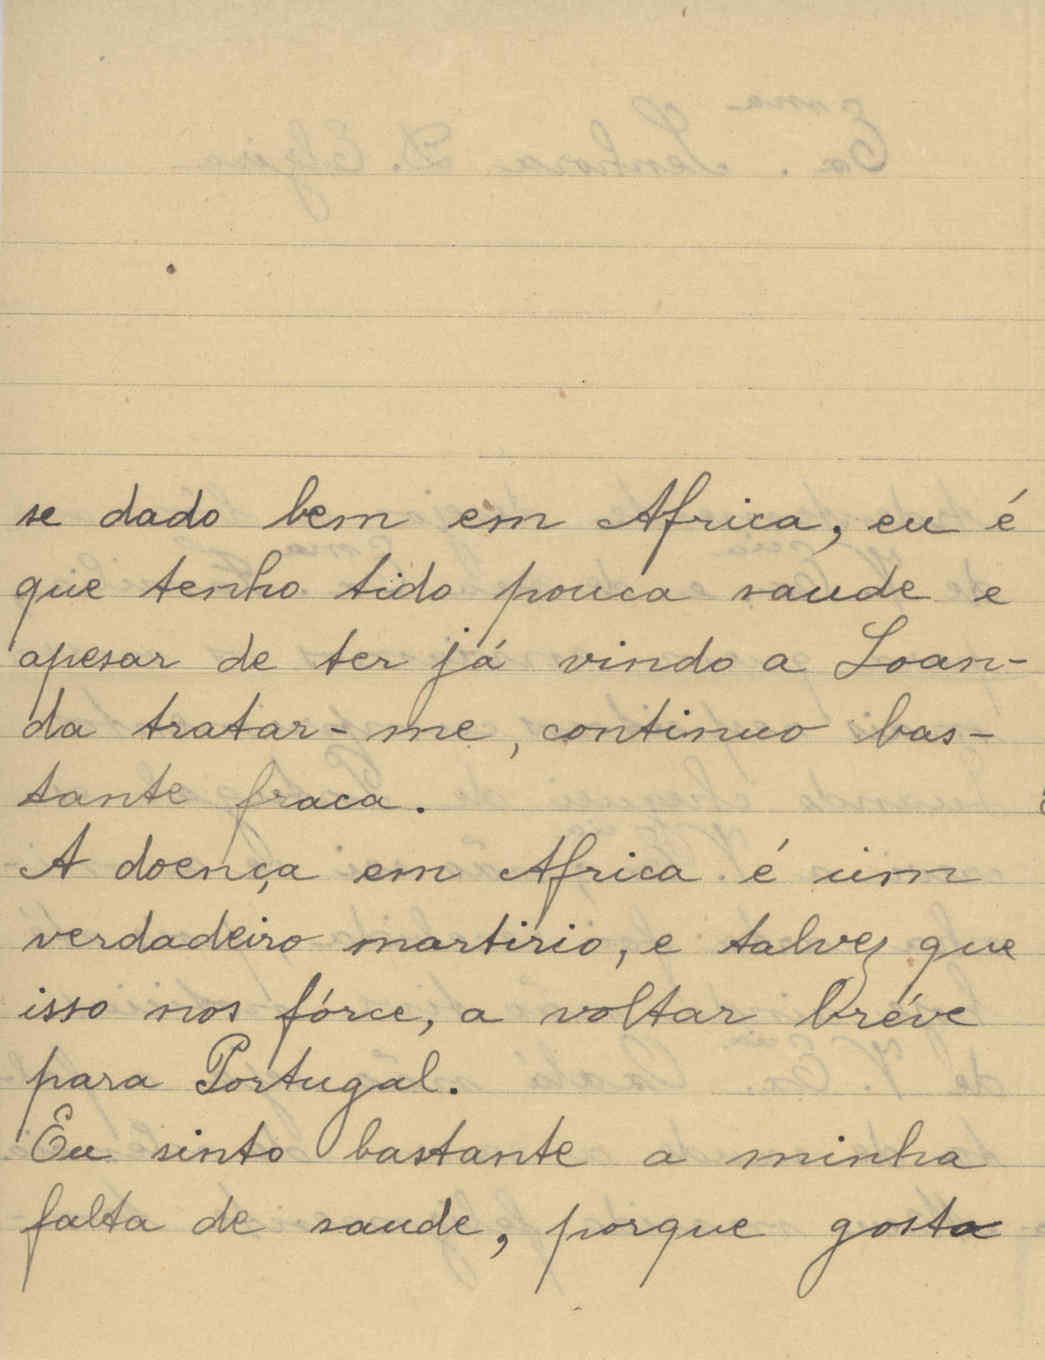 se dado bem em Africa, eu é
que tenho tido pouca saude e
apesar de ter já vindo a Loan-
da tratar-me, continuo bas-
tante fraca.
A doença em Africa é um
verdadeiro martirio, e talvez que
isso nos fórce, a voltar bréve
para Portugal.
Eu sinto bastante a minha
falta de saude, porque gosto